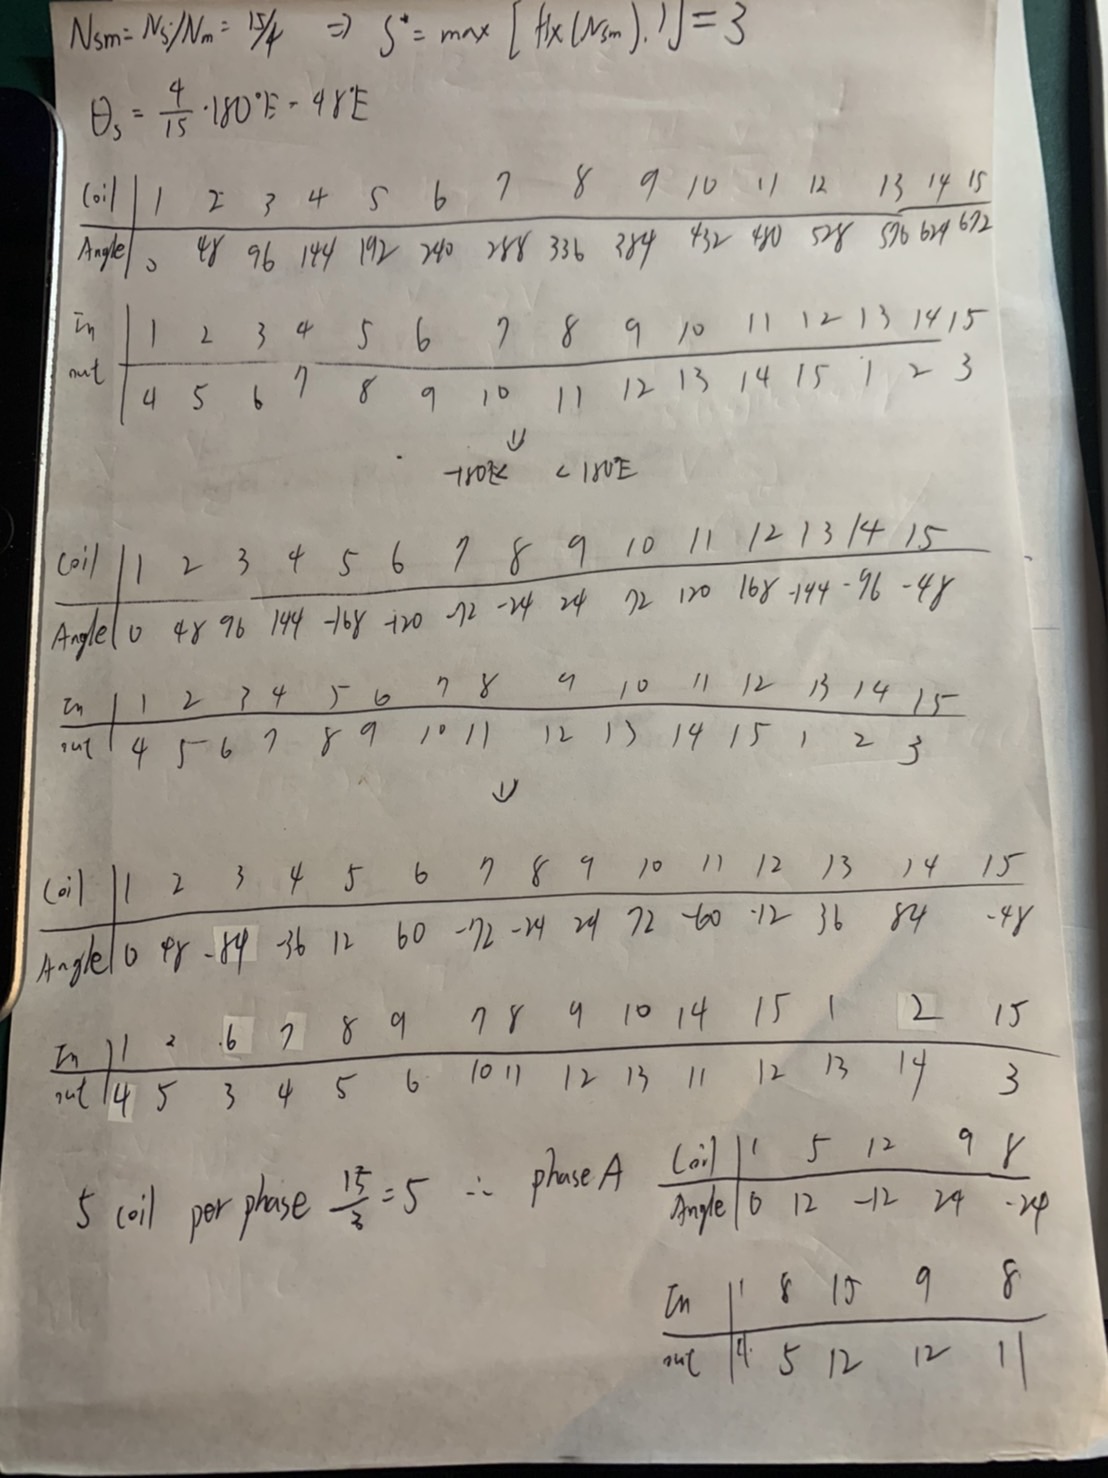 Nsm = Ns/Nm = 15/4 ⇒ S* = max [fix(Nsm), 1] = 3
θs = 4/15 · 180°E = 48°E
Coil 1 2 3 4 5 6 7 8 9 10 11 12 13 14 15
Angle 0 48 96 144 192 240 288 336 384 432 480 528 576 624 672
In 1 2 3 4 5 6 7 8 9 10 11 12 13 14 15
out 4 5 6 7 8 9 10 11 12 13 14 15 1 2 3
↓
-180°E< < 180°E
Coil 1 2 3 4 5 6 7 8 9 10 11 12 13 14 15
Angle 0 48 96 144 -168 -120 -72 -24 24 72 120 168 -144 -96 -48
In 1 2 3 4 5 6 7 8 9 10 11 12 13 14 15
out 4 5 6 7 8 9 10 11 12 13 14 15 1 2 3
↓
Coil 1 2 3 4 5 6 7 8 9 10 11 12 13 14 15
Angle 0 48 -84 -36 12 60 -72 -24 24 72 -60 -12 36 84 -48
In 1 2 6 7 8 9 7 8 9 10 14 15 1 2 15
out 4 5 3 4 5 6 10 11 12 13 11 12 13 14 3
5 coil per phase 15/3 = 5 ∴ phase A
Coil 1 5 12 9 8
Angle 0 12 -12 24 -24
In 1 8 15 9 8
out 4 5 12 12 11